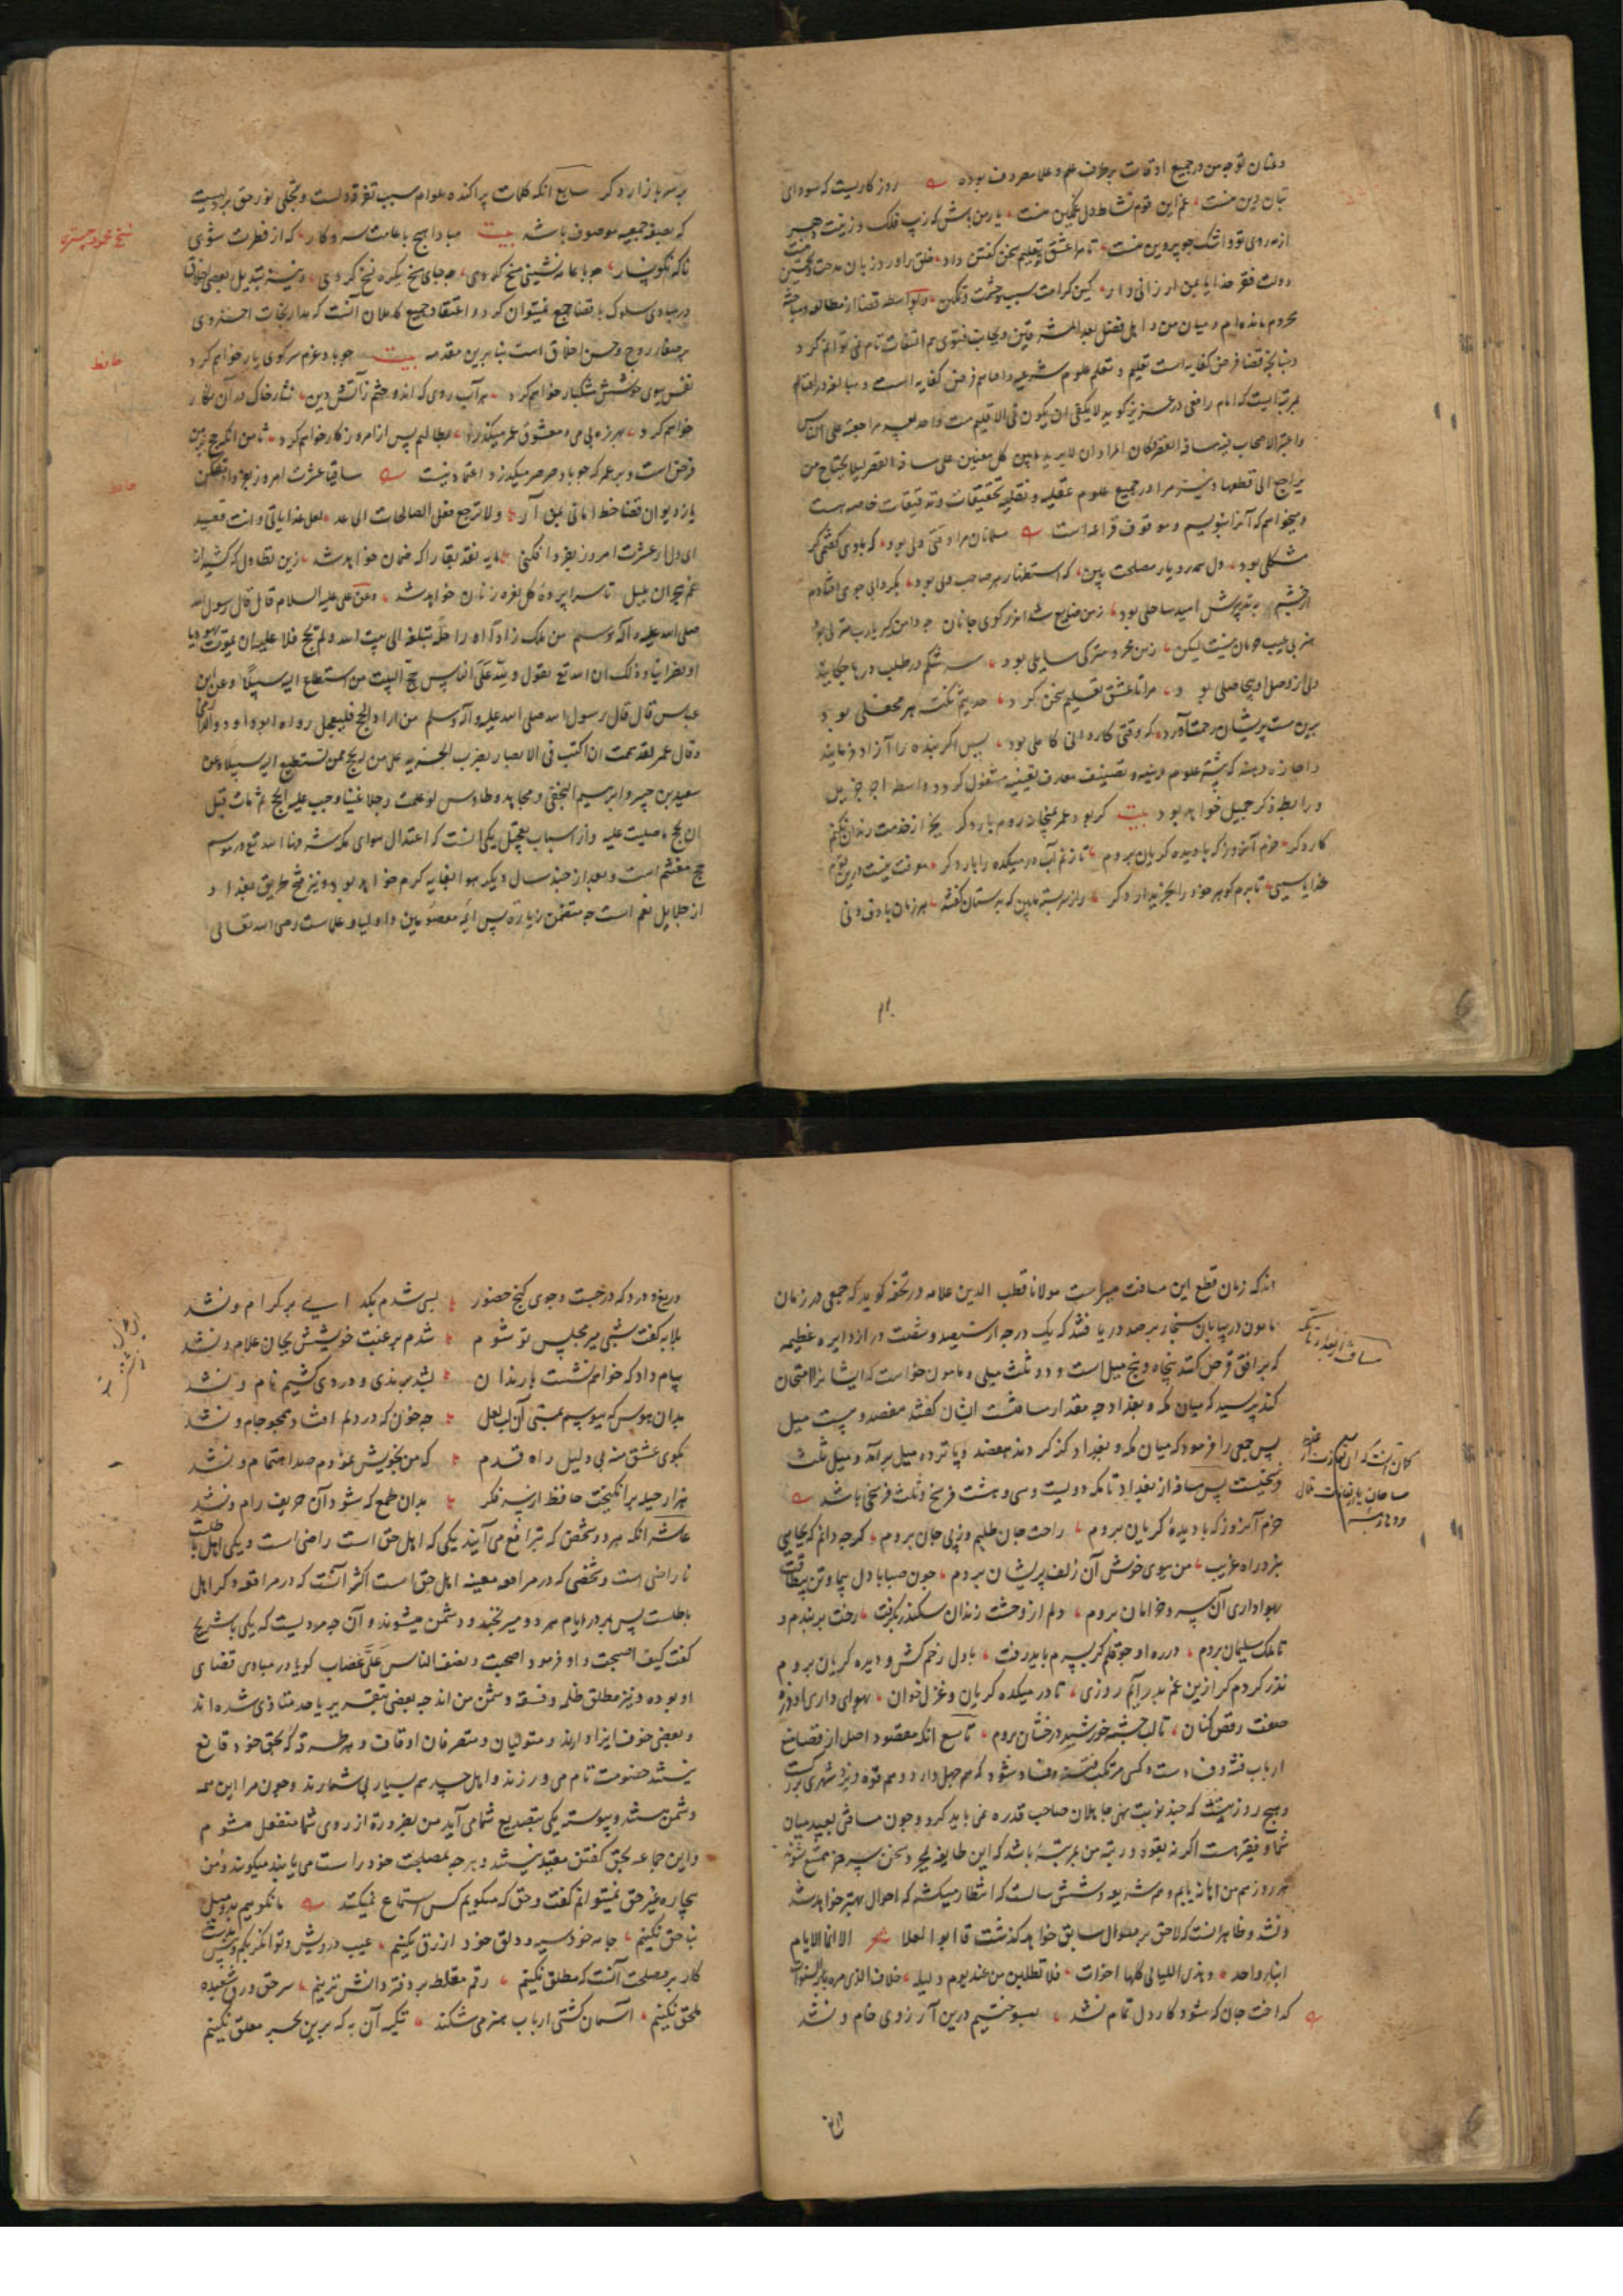 وعنان توجه من در جمیع اوقات بر طرف علم و علما معروف بوده روزکاریست که سودای
بتان دین منست غم این قوم نشاط دل غمکین منست یار من باش که زیب فلک و زینت دهر
از مه روی تو و اشک چو پروین منست تا مرا عشق تو تعلیم سخن کفتن داد خلق را ورد زبان مدحت و تحسین منست
دولت فقر خدایا بمن ارزانی دار کین کرامت سبب حشمت و تمکین و بواسطه قضا از مطالعه و مباحثه
محروم مانده ام و میان من و اهل فضل بعد المشرقین و بجانب فتوی هم التفات تام نمی توانم کرد
و چنانچه قضا فرض کفایه است تعلیم و تعلم علوم شرعیه و افتا هم فرض کفایه است
بمرتبه ایست که امام رافعی در عزیز کوید لا یکفی ان یکون فی الاقلیم مفت واحد
مراجعته علی الناس
واعتبر الاصحاب فیه مسافة القصر لئلا یحتاج من
یراجع الی قطعها و نیز مرا در جمیع علوم عقلیه و نقلیه تحقیقات و تدقیقات خاصه هست
و میخواهم که آنرا بنویسم و موقوف فراغه است مسلمانان مرا وقتی دلی بود که با وی کفتمی کر
مشکلی بود دل همدرد یار مصلحت بین که استظهار هر صاحب دلی بود بکردابی چو می افتادم
از چشم به تدبیرش امید ساحلی بود ز من ضایع شد اندر کوی جانان چه دامن کیر یارب منزلی بود
هنر بی عیب حرمان نیست لیکن ز من محرومتر کی سایلی بود سرشکم در طلب درها چکانید
ولی از وصل او بیحاصلی بود مرا تا عشق تعلیم سخن کرد حدیثم نکته هر محفلی بود
برین مست پریشان رحمت آرید که وقتی کاردانی کاملی بود پس اکر بنده را آزاد فرمایند
و اجازه دهند که بنشر علوم دینیه و تصنیف معارف یقینیه مشغول کردد واسطه اجر جزیل
و رابطه ذکر جمیل خواهد بود بیت کر بود عمر بمیخانه روم بار دکر بجز از خدمت رندان نکنم
کار دکر خرم آنروز که با دیده کریان بروم تا زنم آب در میکده را بار دکر معرفت نیست درین قوم
خدایا سببی تا برم کوهر خود را بخریدار دکر راز سربسته ما بین که بدستان کفتند هر زمان با دف و نی
بر سر بازار دکر سابع انکه کلمات پراکنده عوام سبب تفرقه دلست و تجلی نور حق بر دلیست
که بصفة جمعیه موصوف باشد بیت مبادا هیچ با عامت سر و کار که از فطرت شوی
ناکه نکونسار چو با عامه نشینی مسخ کردی چه جای مسخ یکره نسخ کردی و نیز تبدیل بعضی اخلاق
در مبادی سلوک با قضا جمع نمیتوان کرد و اعتقاد جمیع کاملان آنست که مدار نجات اخروی
بر صفاء روح و حسن اخلاق است بنا برین مقدمه بیت چو باد عزم سر کوی یار خواهم کرد
نفس ببوی خوشش مشکبار خواهم کرد هر آب روی که اندوختم ز دانش و دین نثار خاک ره آن نکار
خواهم کرد بهرزه بی می و معشوق عمر میکذرد بطالتم بس از امروز کار خواهم کرد ثامن انکه حج بر من
فرض است و بر عمر که چو باد صرصر میکذرد اعتماد نیست ساقیا عشرت امروز بفردا مفکن
یا ز دیوان قضا خط امانی بمن آر ولا ترجع فعل الصالحات الی غد لعل غدا یاتی وانت فقید
ای دل ار عشرت امروز بفردا فکنی مایه نقد بقا را که ضمان خواهد شد زین تطاول که کشید از
غم هجران بلبل تا سراپرده کل نعره زنان خواهد شد وعن علی علیه السلام قال قال رسول الله
صلی الله علیه وآله وسلم من ملک زادا وراحلة تبلغه الی بیت الله ولم یحج فلا علیه ان یموت یهودیا
او نصرانیا وذلک ان الله تع یقول ولله علی الناس حج البیت من استطاع الیه سبیلا وعن ابن
عباس قال قال رسول الله صلی الله علیه وآله وسلم من اراد الحج فلیعجل رواه ابو داود والدارمی
وقال عمر لقد هممت ان اکتب فی الامصار بضرب الجزیه علی من لم یحج ممن یستطیع الیه سبیلا وعن
سعید بن جبیر وابرهیم النخعی ومجاهد وطاوس لو علمت رجلا غنیا وجب علیه الحج ثم مات قبل
ان یحج ما صلیت علیه و از اسباب تعجیل یکی آنست که اعتدال هوای مکه شرفها الله تع در موسم
حج مغتنم است و بعد از چند سال دیکر هوا بغایه کرم خواهد بود و نیز فتح طریق بغداد
از جلایل نعم است چه متضمن زیارة بیس ائمه معصومین و اولیا و علماست رضی الله تعالی
شیخ محمود شبستری
حافظ
حافظ
انکه زمان قطع این مسافت میسر است مولانا قطب الدین علامه در تحفه کوید که جمعی در زمان
مامون در بیابان سنجار برصد دریافتند که یک درجه از سیصد و شصت درجه از دایره عظیمه
که بر افق فرض کنند پنجاه و پنج میل است و دو ثلث میلی و مامون خواست که ایشانرا امتحان
کند پرسید که میان مکه و بغداد چه مقدار مسافتست ایشان کفتند هفصد و بیست میل
پس جمعی را فرمود که میان مکه و بغداد کذر کردند هفصد و پانزده میل برآمد و میل ثلث
فرسخیست پس مسافه از بغداد تا مکه دویست و سی و هشت فرسخ و ثلث فرسخی باشد
خرم آنروز که با دیده کریان بروم راحت جان طلبم وز پی جان بروم کرچه دانم که بجایی
نبرد راه غریب من ببوی خوش آن زلف پریشان بروم چون صبا با دل بیمار و تن بیطاقت
بهواداری آن سرو خرامان بروم دلم از وحشت زندان سکندر بکرفت رخت بربندم و
تا ملک سلیمان بروم در ره او چو قلم کر بسرم باید رفت با دل زخم کش و دیده کریان بروم
نذر کردم کر ازین غم بدر آیم روزی تا در میکده کریان و غزل خوان بهواداری او ذره
صفت رقص کنان تا لب چشمه خورشید درخشان بروم تاسع انکه مقصود اصل از قضا منع
ارباب فتنه و فساد است و کسی مرتکب فتنه و فساد شود که هم جهل دارد و هم قوه و نزد شهری بزرکست
و هیچ روز نیست که چند نوبت نهی جاهلان صاحب قدره نمی باید کرد و چون مسافتی بعید میان
شما و فقیر هست اکر نه بقوه و رتبه من بمرتبه باشد که این طایفه بمجرد سخن
ممتنع شوند
هر روز هم من اهانه یابم و هم شریعه و شش سالست که انتظار میکشم که احوال بهتر خواهد شد
و نشد و ظاهر انست که لاحق بر منوال سابق خواهد کذشت قال ابو العلا شعر الا انما الایام
ابناء واحد وهذی اللیالی کلها اخوات فلا تطلبن من عند یوم ولیله خلاف الذی مرت به السنوات
کداخت جان که شود کار دل تمام نشد بسوختیم درین آرزوی خام و نشد
مسافة از بغداد تا مکه
دریغ و درد که در جست و جوی کنج حضور بسی شدم بکدایی بر کرام و نشد
بلابه کفت شبی میر مجلس تو شوم شدم برغبت خویشش بجان غلام و نشد
پیام داد که خواهم نشست با رندان بشد برندی و دردی کشیم نام و نشد
بدان هوس که ببوسم بمستی آن لب لعل چه خون که در دلم افتاد همچو جام و نشد
بکوی عشق منه بی دلیل راه قدم که من بخویش نمودم صد اهتمام و نشد
هزار حیله برانکیخت حافظ از سر فکر بدان طمع که شود آن حریف رام و نشد
عاشر انکه هر دو شخص که بترافع می آیند یکی که اهل حق است راضی است و یکی اهل باطلست
ناراضی است و شخصی که در مرافعه معینه اهل حق است اکثر آنست که در مرافعه دکر اهل
باطلست پس بمرور ایام هر دو میرنجند و دشمن میشوند و آن چه مرویست که یکی با شریح
کفت کیف اصبحت و او فرمود اصبحت و نصف الناس علی غضاب کویا در مبادی قضای
او بوده و نیز مطلق ظلمه و فسقه دشمن من اند چه بعضی بتعزیر یا حد متاذی شده اند
و بعضی خوف ایذا دارند و متولیان و متصرفان اوقاف و هر طبقه که بحق خود قانع
نیستند خصومت تام می ورزند و اهل حسد هم بسیار بی شمارند و چون مرا این همه
دشمن هستند و پیوسته یکی بتصدیع شما می آید من بضرورة از روی شما منفعل میشوم
و این جماعه بحق کفتن مقید نیستند و هر چه بمصلحت خود راست می یابند میکویند و من
بیچاره غیر حق نمیتوانم کفت و حق که میکویم کس استماع نمیکند ما نکوییم بد و میل
بناحق نکنیم جامه کس سیه و دلق خود ازرق نکنیم عیب درویش و توانکر بکم و بیش بدست
کار بد مصلحت آنست که مطلق نکنیم رقم مغلطه بر دفتر دانش نزنیم سر حق بر ورق شعبده
ملحق نکنیم آسمان کشتی ارباب هنر می شکند تکیه آن به که برین بحر معلق نکنیم